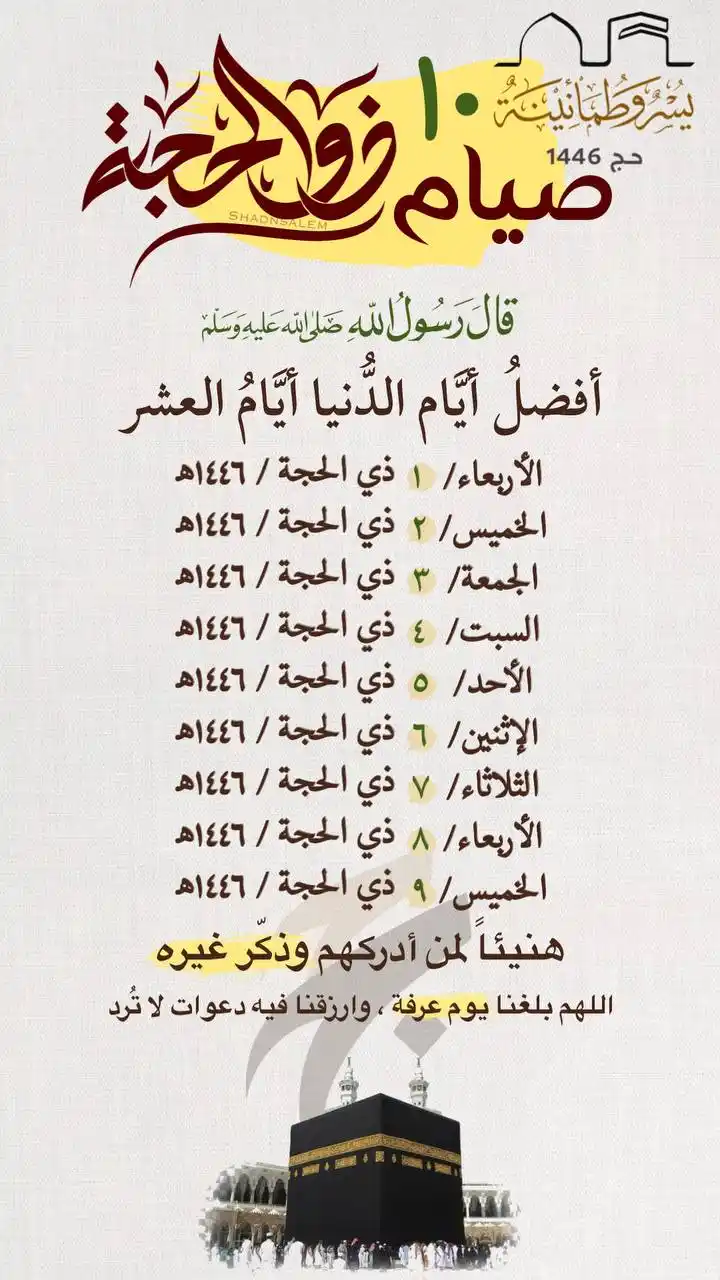 يُسْرٌ وَطُمَأْنِينَةٌ
حج 1446
صيام ١٠ ذو الحجة
SHADNSALEM
قَالَ رَسُولُ اللّٰهِ صَلَى اللّٰه عَليهِ وَسَلّم
أفضلُ أيَّام الدُّنيا أيَّامُ العشر
الأربعاء/ ١ ذي الحجة / ١٤٤٦هـ
الخميس/ ٢ ذي الحجة / ١٤٤٦هـ
الجمعة/ ٣ ذي الحجة / ١٤٤٦هـ
السبت/ ٤ ذي الحجة / ١٤٤٦هـ
الأحد/ ٥ ذي الحجة / ١٤٤٦هـ
الإثنين/ ٦ ذي الحجة / ١٤٤٦هـ
الثلاثاء/ ٧ ذي الحجة / ١٤٤٦هـ
الأربعاء/ ٨ ذي الحجة / ١٤٤٦هـ
الخميس/ ٩ ذي الحجة / ١٤٤٦هـ
هنيئاً لمن أدركهم وذكّر غيره
اللهم بلغنا يوم عرفة ، وارزقنا فيه دعوات لا تُرد
حج